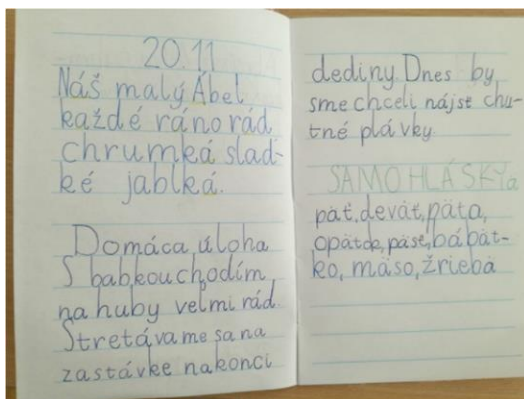 20.11
Náš malý Ábel
každé ráno rád
chrumká slad-
ké jablká.
Domáca úloha
S babkou chodím
na huby veľmi rád.
Stretávame sa na
zastávke na konci
dediny. Dnes by
sme chceli nájsť chu-
tné plávky.
SAMOHLÁSKY a
päť, deväť, päta,
opätok, päsť, bábät-
ko, mäso, žriebä